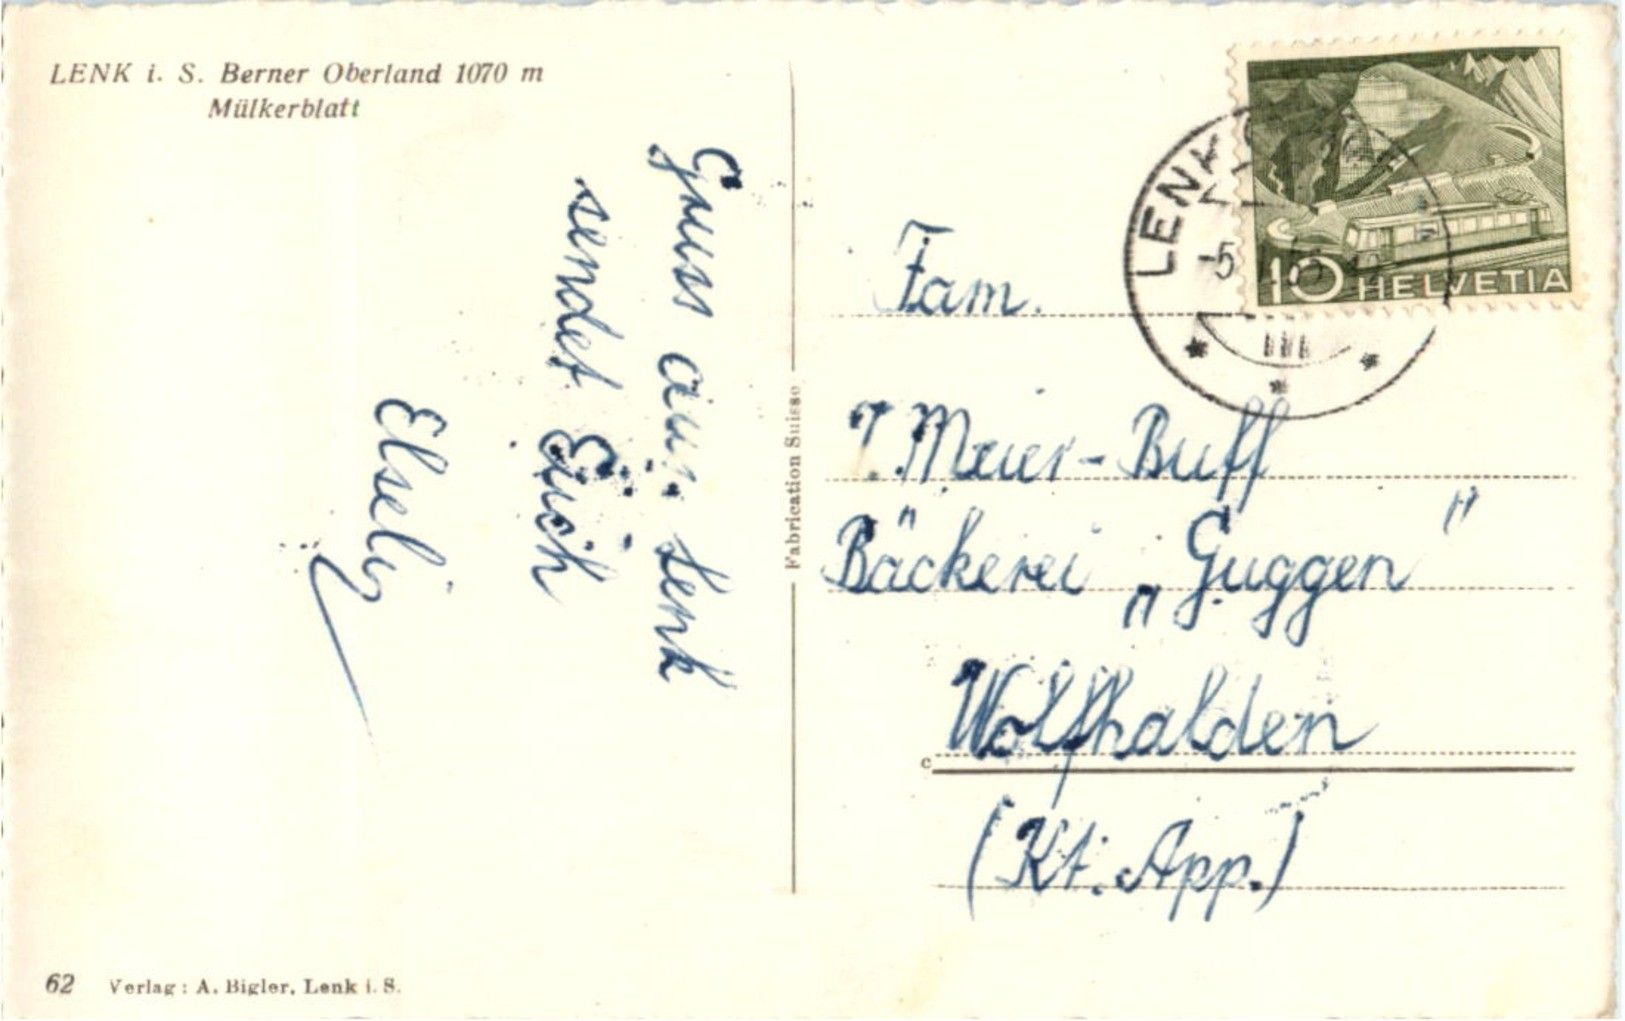 LENK i. S. Berner Oberland 1070 m
Mülkerblatt
Gruss aus Lenk
sendet Euch
Elseli
Fabrication Suisse
LENK
-5
III
10 HELVETIA
Fam.
Meier-Buff
Bäckerei „Guggen"
Wolfhalden
(Kt. App.)
c
62 Verlag: A. Bigler, Lenk i. S.